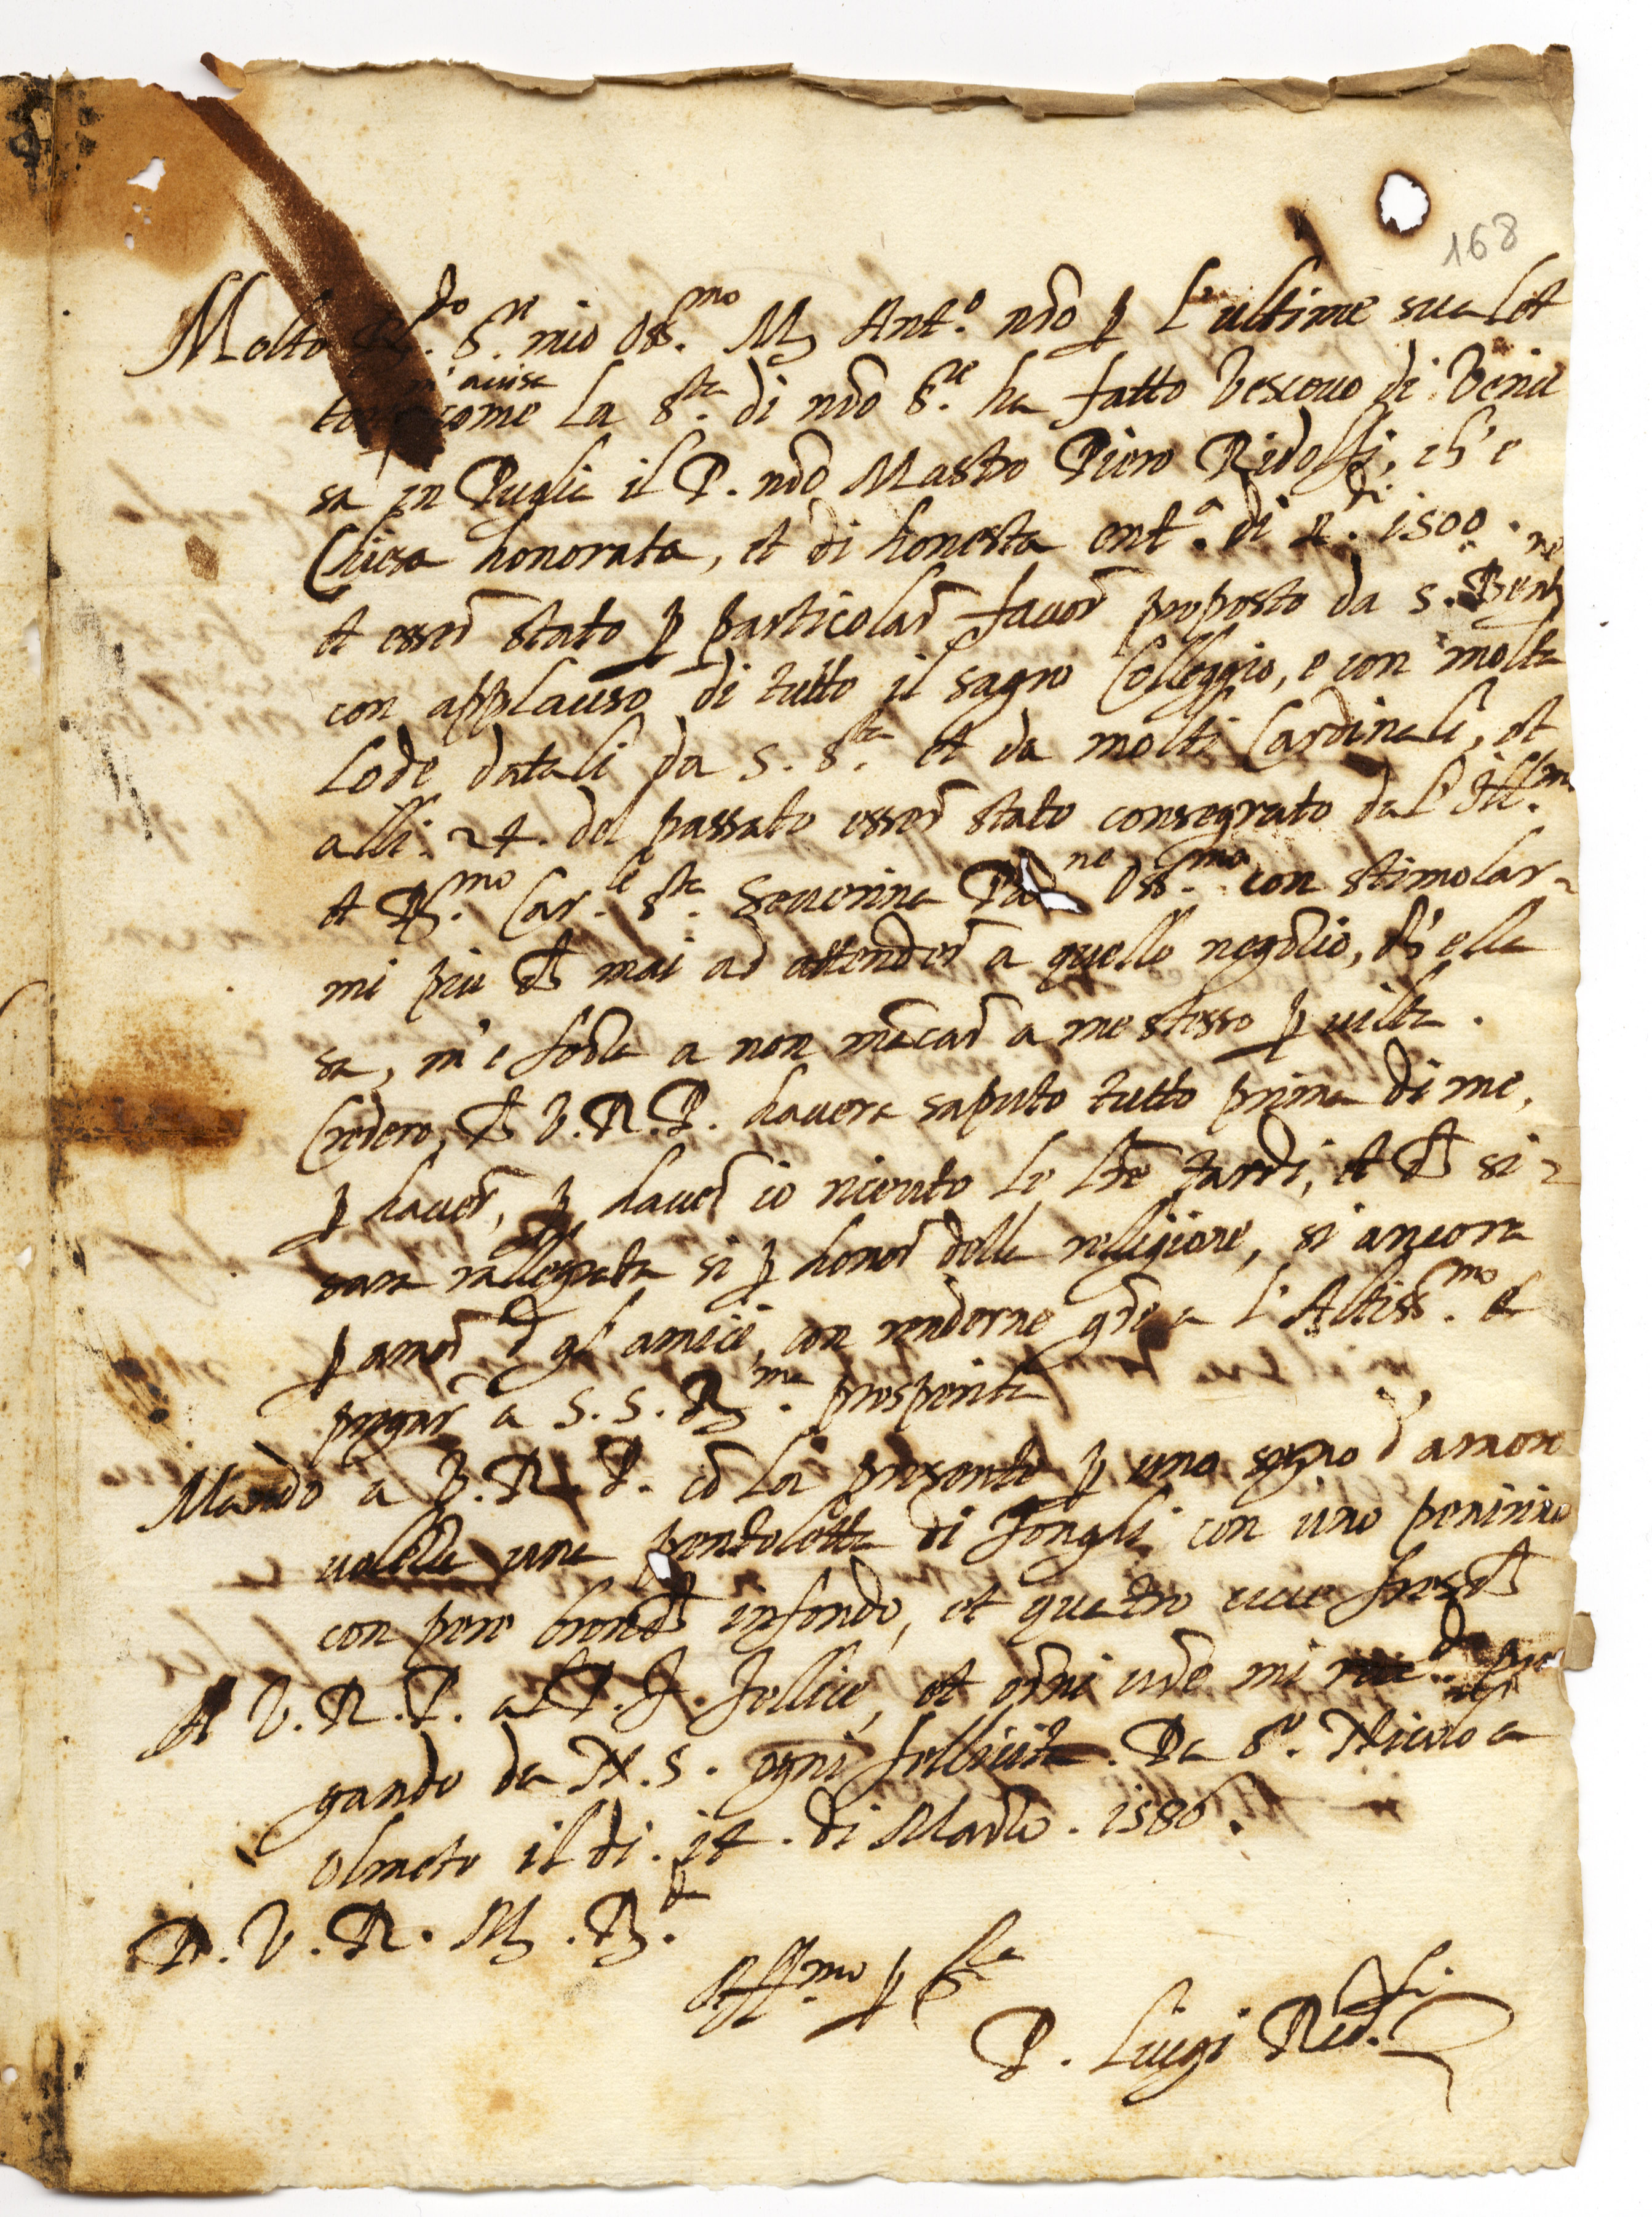 168
Molto R.do S.re mio Oss.mo M Ant.o nr̃o p l'ultime sua let
m'avisa
come la S.ta di nr̃o S.re ha fatto Vescovo di Venu
sa in Puglia il P. nr̃o Mastro Piero Ridolfi, ch'e
Chiesa honorata, et di honesta ent.a di 1500.
et esser̃ stato p particolar̃ favor̃ proposto da S. B.ne
con applauso di tutto il sagro Colleggio, e con molta
lode datali da S. S.ta et da molti Cardinali, et
alli. 24. del passato esser̃ stato consegrato da l'Ill.mo
et R.mo Car.le S.ta Severina Pa ne Oss.mo con stimolar-
mi piu ch mai ad attender̃ a quello negotio, ch'ella
sa, m'eshorta a non mãcar̃ a me stesso p viltà.
Credero, ch V. R. P. havera saputo tutto prima di me,
p haver̃, p haver̃ io riceuto le lr̃e tardi, et ch si-
sara rallegrata si p honor̃ della religione, si ancora
p amor̃ d gl'amici, con renderne gr̃e a l'Altiss.mo et
pregar̃ a S. S. R.ma prosperita
Mando a V. R. P. cõ la presente p uno segno d'amore
volezza una pentoletta di fongli con uno penirino
con pere infondo, et quatro uve fresch
A V. R. P. al P. F. Fellice, et or̃ni vr̃e mi rac.do pre
gando da N. S. ogni fellicità. Da S.o Nicolo a
Olmeto il di. 14. di Marzo. 1586.
D. V. R. M. R.da
Aff.mo p S.la
P. Luigi Rid.lfi